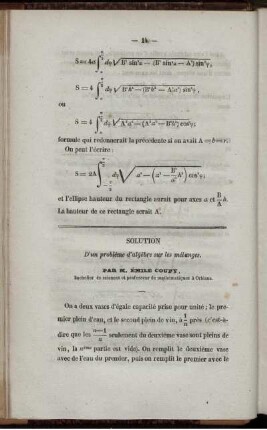 — 24 —
ou
formule qui redonnerait la précédente si on avait A = b = c.
On peut l'écrire :
et l'ellipse hauteur du rectangle aurait pour axes a et B/A b.
La hauteur de ce rectangle serait A'.
SOLUTION
D'un problème d'algèbre sur les mélanges.
PAR M. ÉMILE COUPY,
Bachelier ès sciences et professeur de mathématiques à Orléans.
On a deux vases d'égale capacité prise pour unité ; le pre-
mier plein d'eau, et le second plein de vin, à 1/n près (c'est-à-
dire que les (n—1)/n seulement du deuxième vase sont pleins de
vin, la nième partie est vide). On remplit le deuxième vase
avec de l'eau du premier, puis on remplit le premier avec le